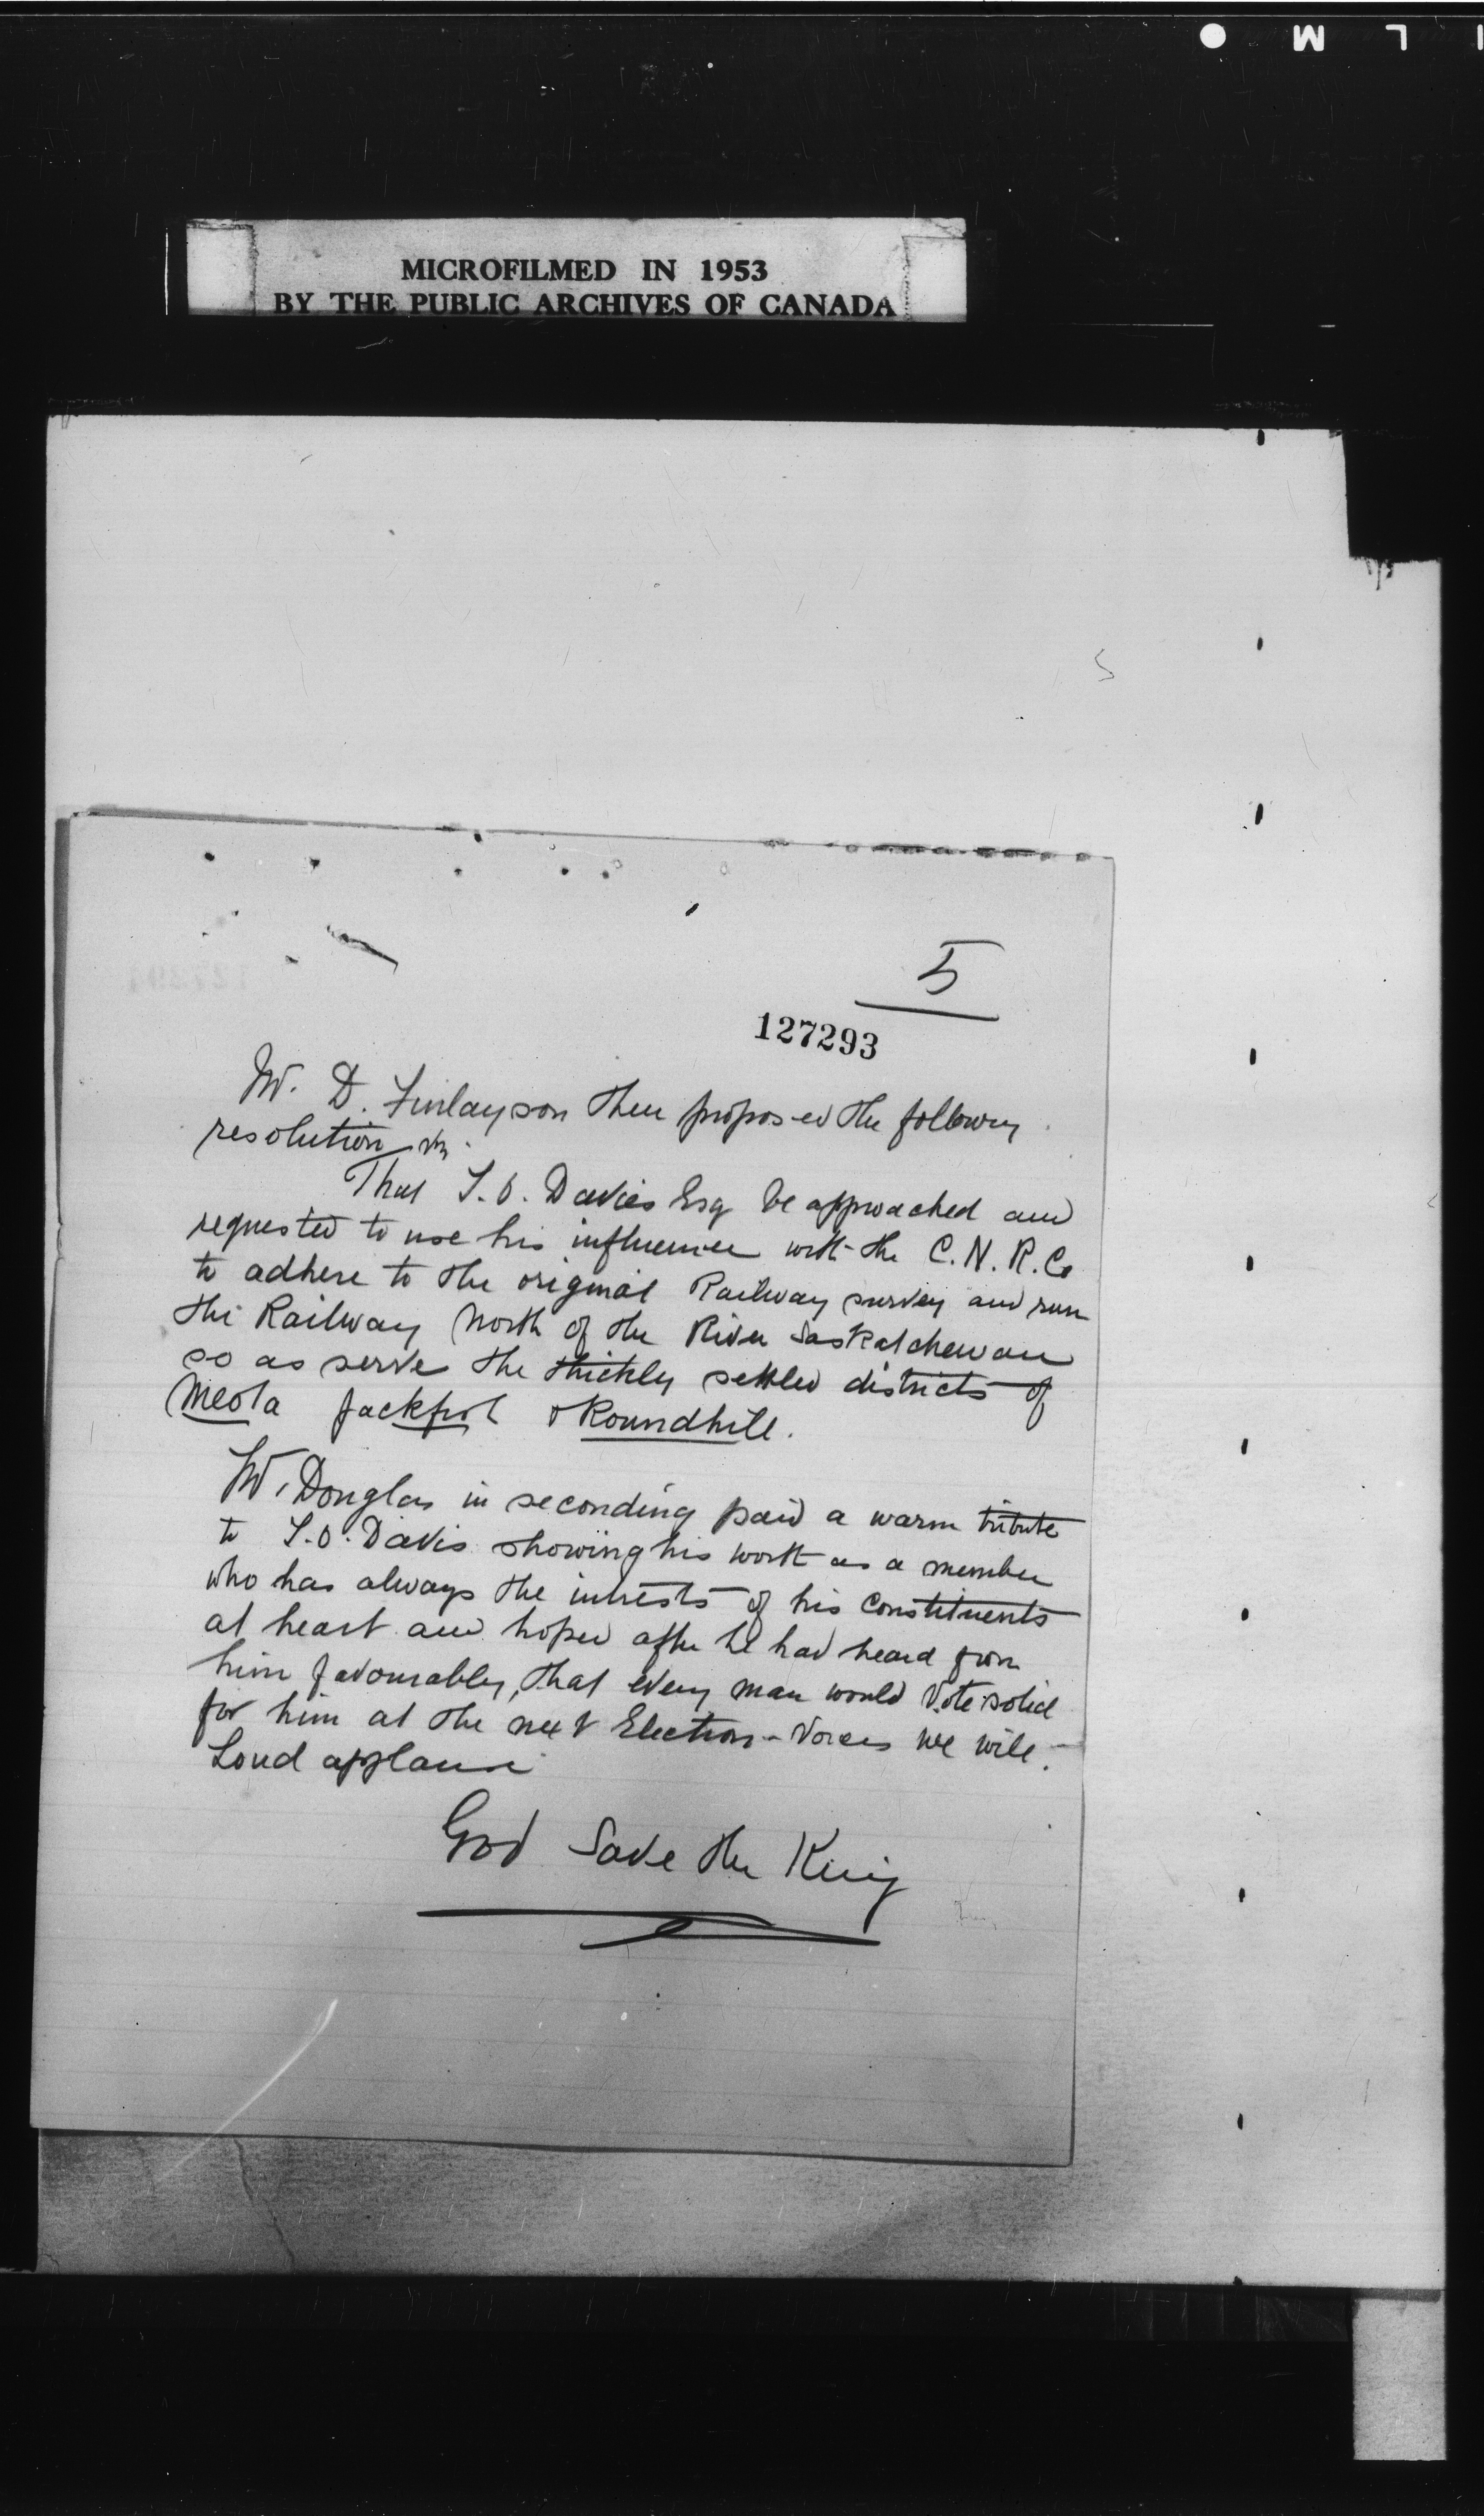 I L M
MICROFILMED IN 1953
BY THE PUBLIC ARCHIVES OF CANADA
5
127293
Mr. D. Finlayson then proposed the following
resolution viz
That T. O. Davies Esq be approached and
requested to use his influence with the C. N. R. Co
to adhere to the original Railway survey and run
the Railway North of the River Saskatchewan
so as serve the thickly settled districts of
Meota Jackfish & Roundhill.
Mr. Douglas in seconding paid a warm tribute
to T. O. Davis showing his worth as a member
who has always the intrests of his constituents
at heart and hoped after he had heard from
him favourably, that every man would Vote solid
for him at the next Election - Voices we will.
Loud applause
God Save the King